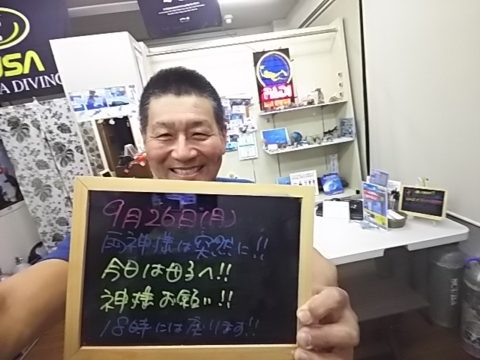 USA
A DIVING
PADI
9月26日(月)
雨神様は突然に!!
今日は母島へ!!
神様お願い!!
18時には戻ります!!